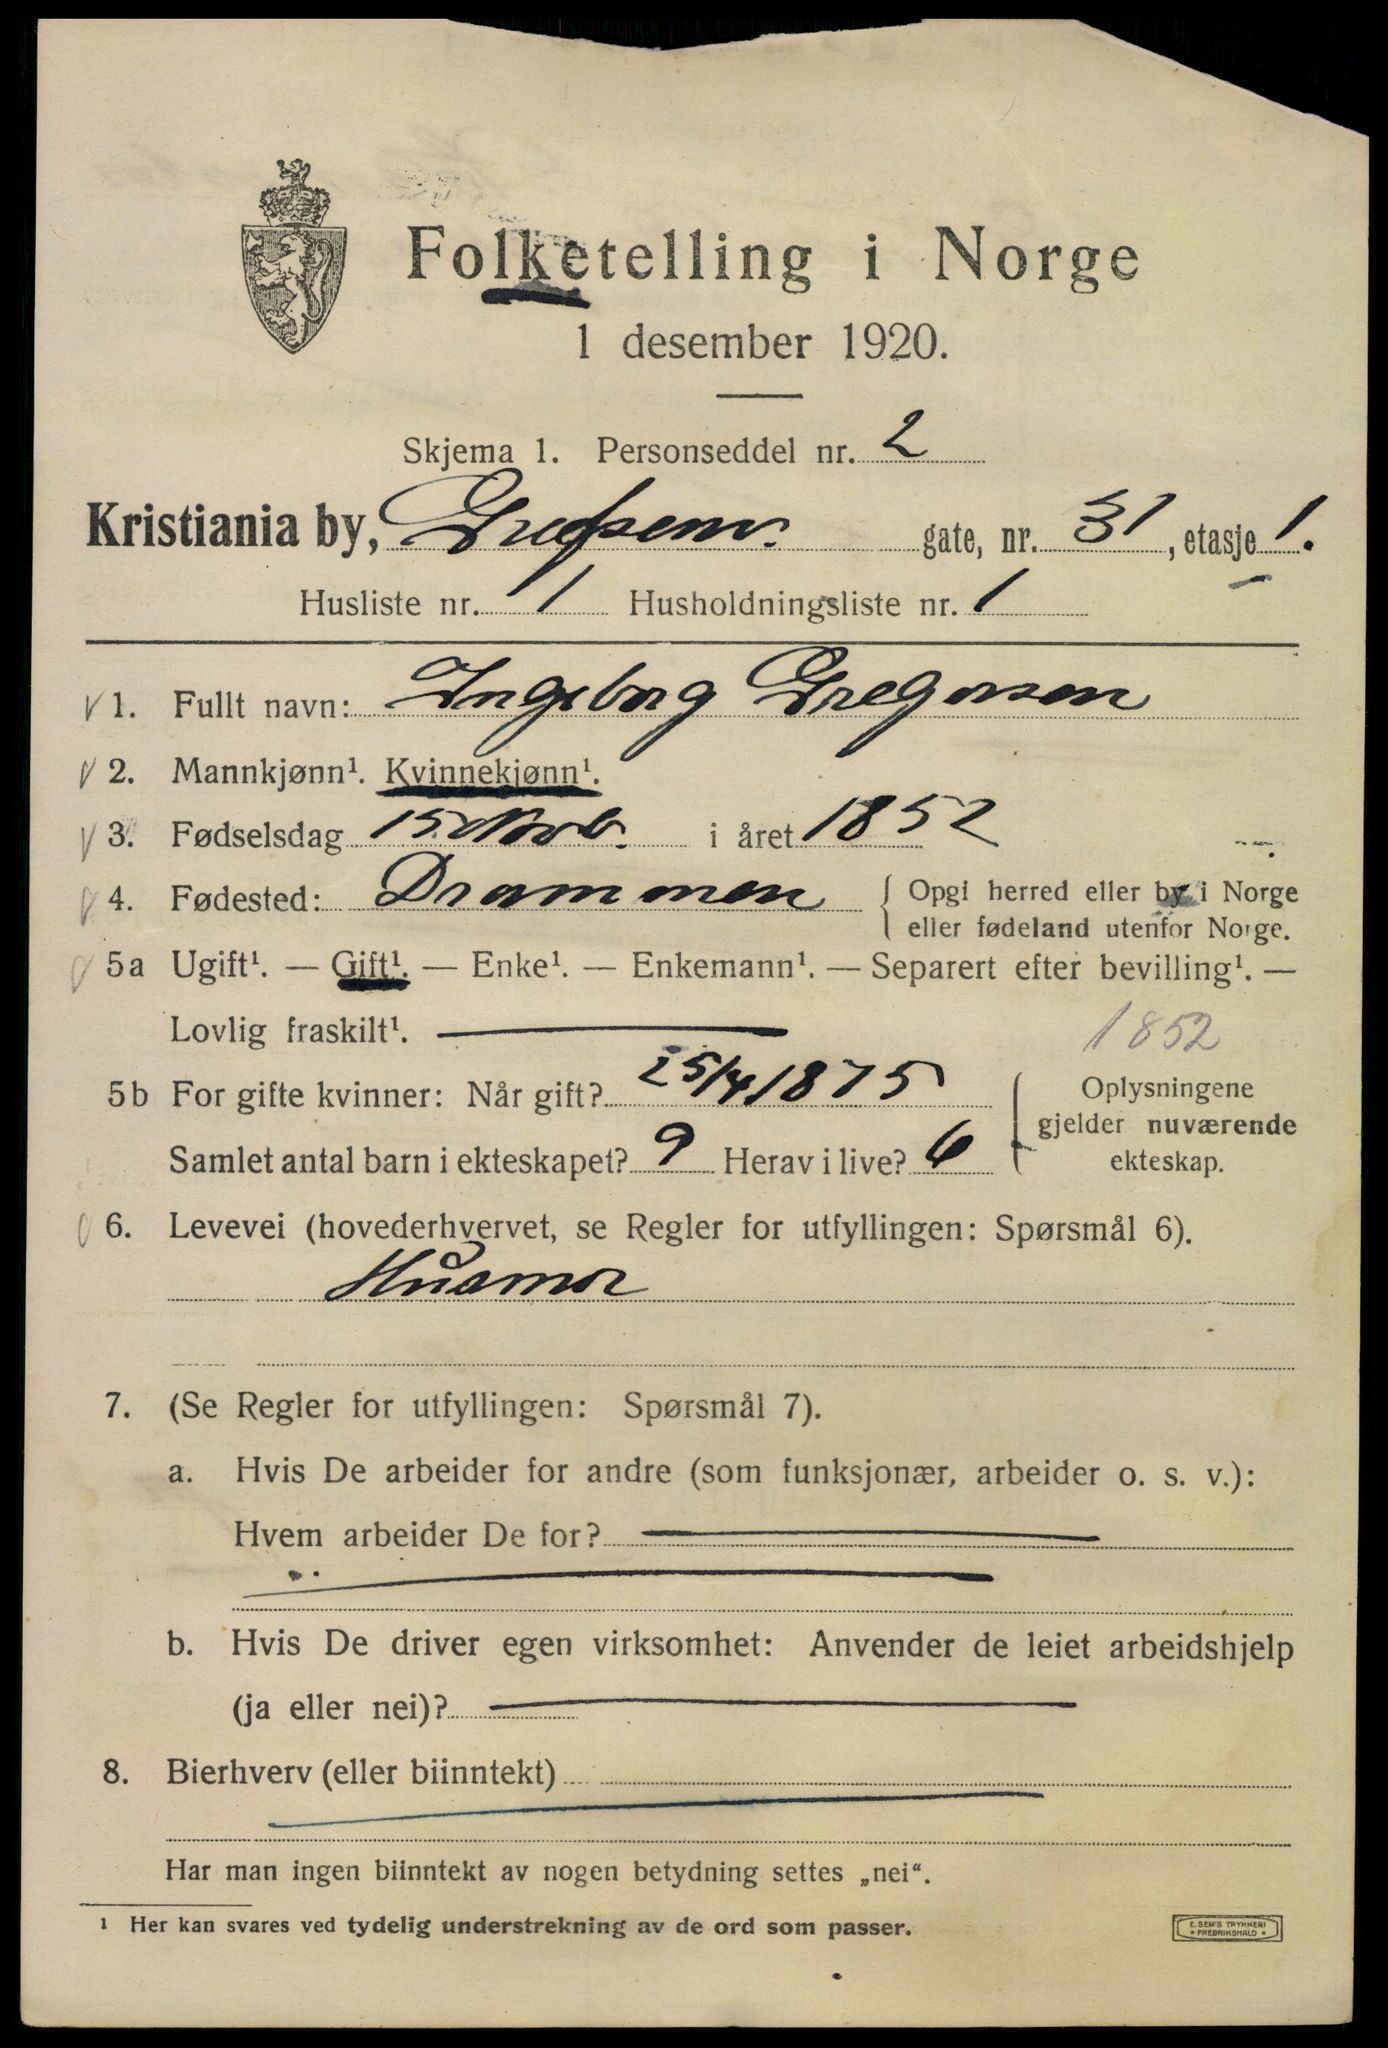 Folketelling i Norge
1 desember 1920.
Skjema 1. Personseddel nr. 2
Kristiania by, Grefsenv. gate, nr. 31, etasje 1.
Husliste nr. 1 Husholdningsliste nr. 1
1. Fullt navn: Ingeborg Gregersen
2. Mannkjønn¹. Kvinnekjønn¹.
3. Fødselsdag 15 Novb. i året 1852
4. Fødested: Drammen { Opgi herred eller by i Norge
eller fødeland utenfor Norge.
5a Ugift¹. — Gift¹. — Enke¹. — Enkemann¹. — Separert efter bevilling¹. —
Lovlig fraskilt¹. 1852
5b For gifte kvinner: Når gift? 25/4 1875 Oplysningene
gjelder nuværende
Samlet antal barn i ekteskapet? 9 Herav i live? 6 ekteskap.
6. Levevei (hovederhvervet, se Regler for utfyllingen: Spørsmål 6).
Husmor
7. (Se Regler for utfyllingen: Spørsmål 7).
a. Hvis De arbeider for andre (som funksjonær, arbeider o. s. v.):
Hvem arbeider De for?
b. Hvis De driver egen virksomhet: Anvender de leiet arbeidshjelp
(ja eller nei)?
8. Bierhverv (eller biinntekt)
Har man ingen biinntekt av nogen betydning settes „nei“.
¹ Her kan svares ved tydelig understrekning av de ord som passer.
E. SEM'S TRYKKERI
* FREDRIKSHALD *